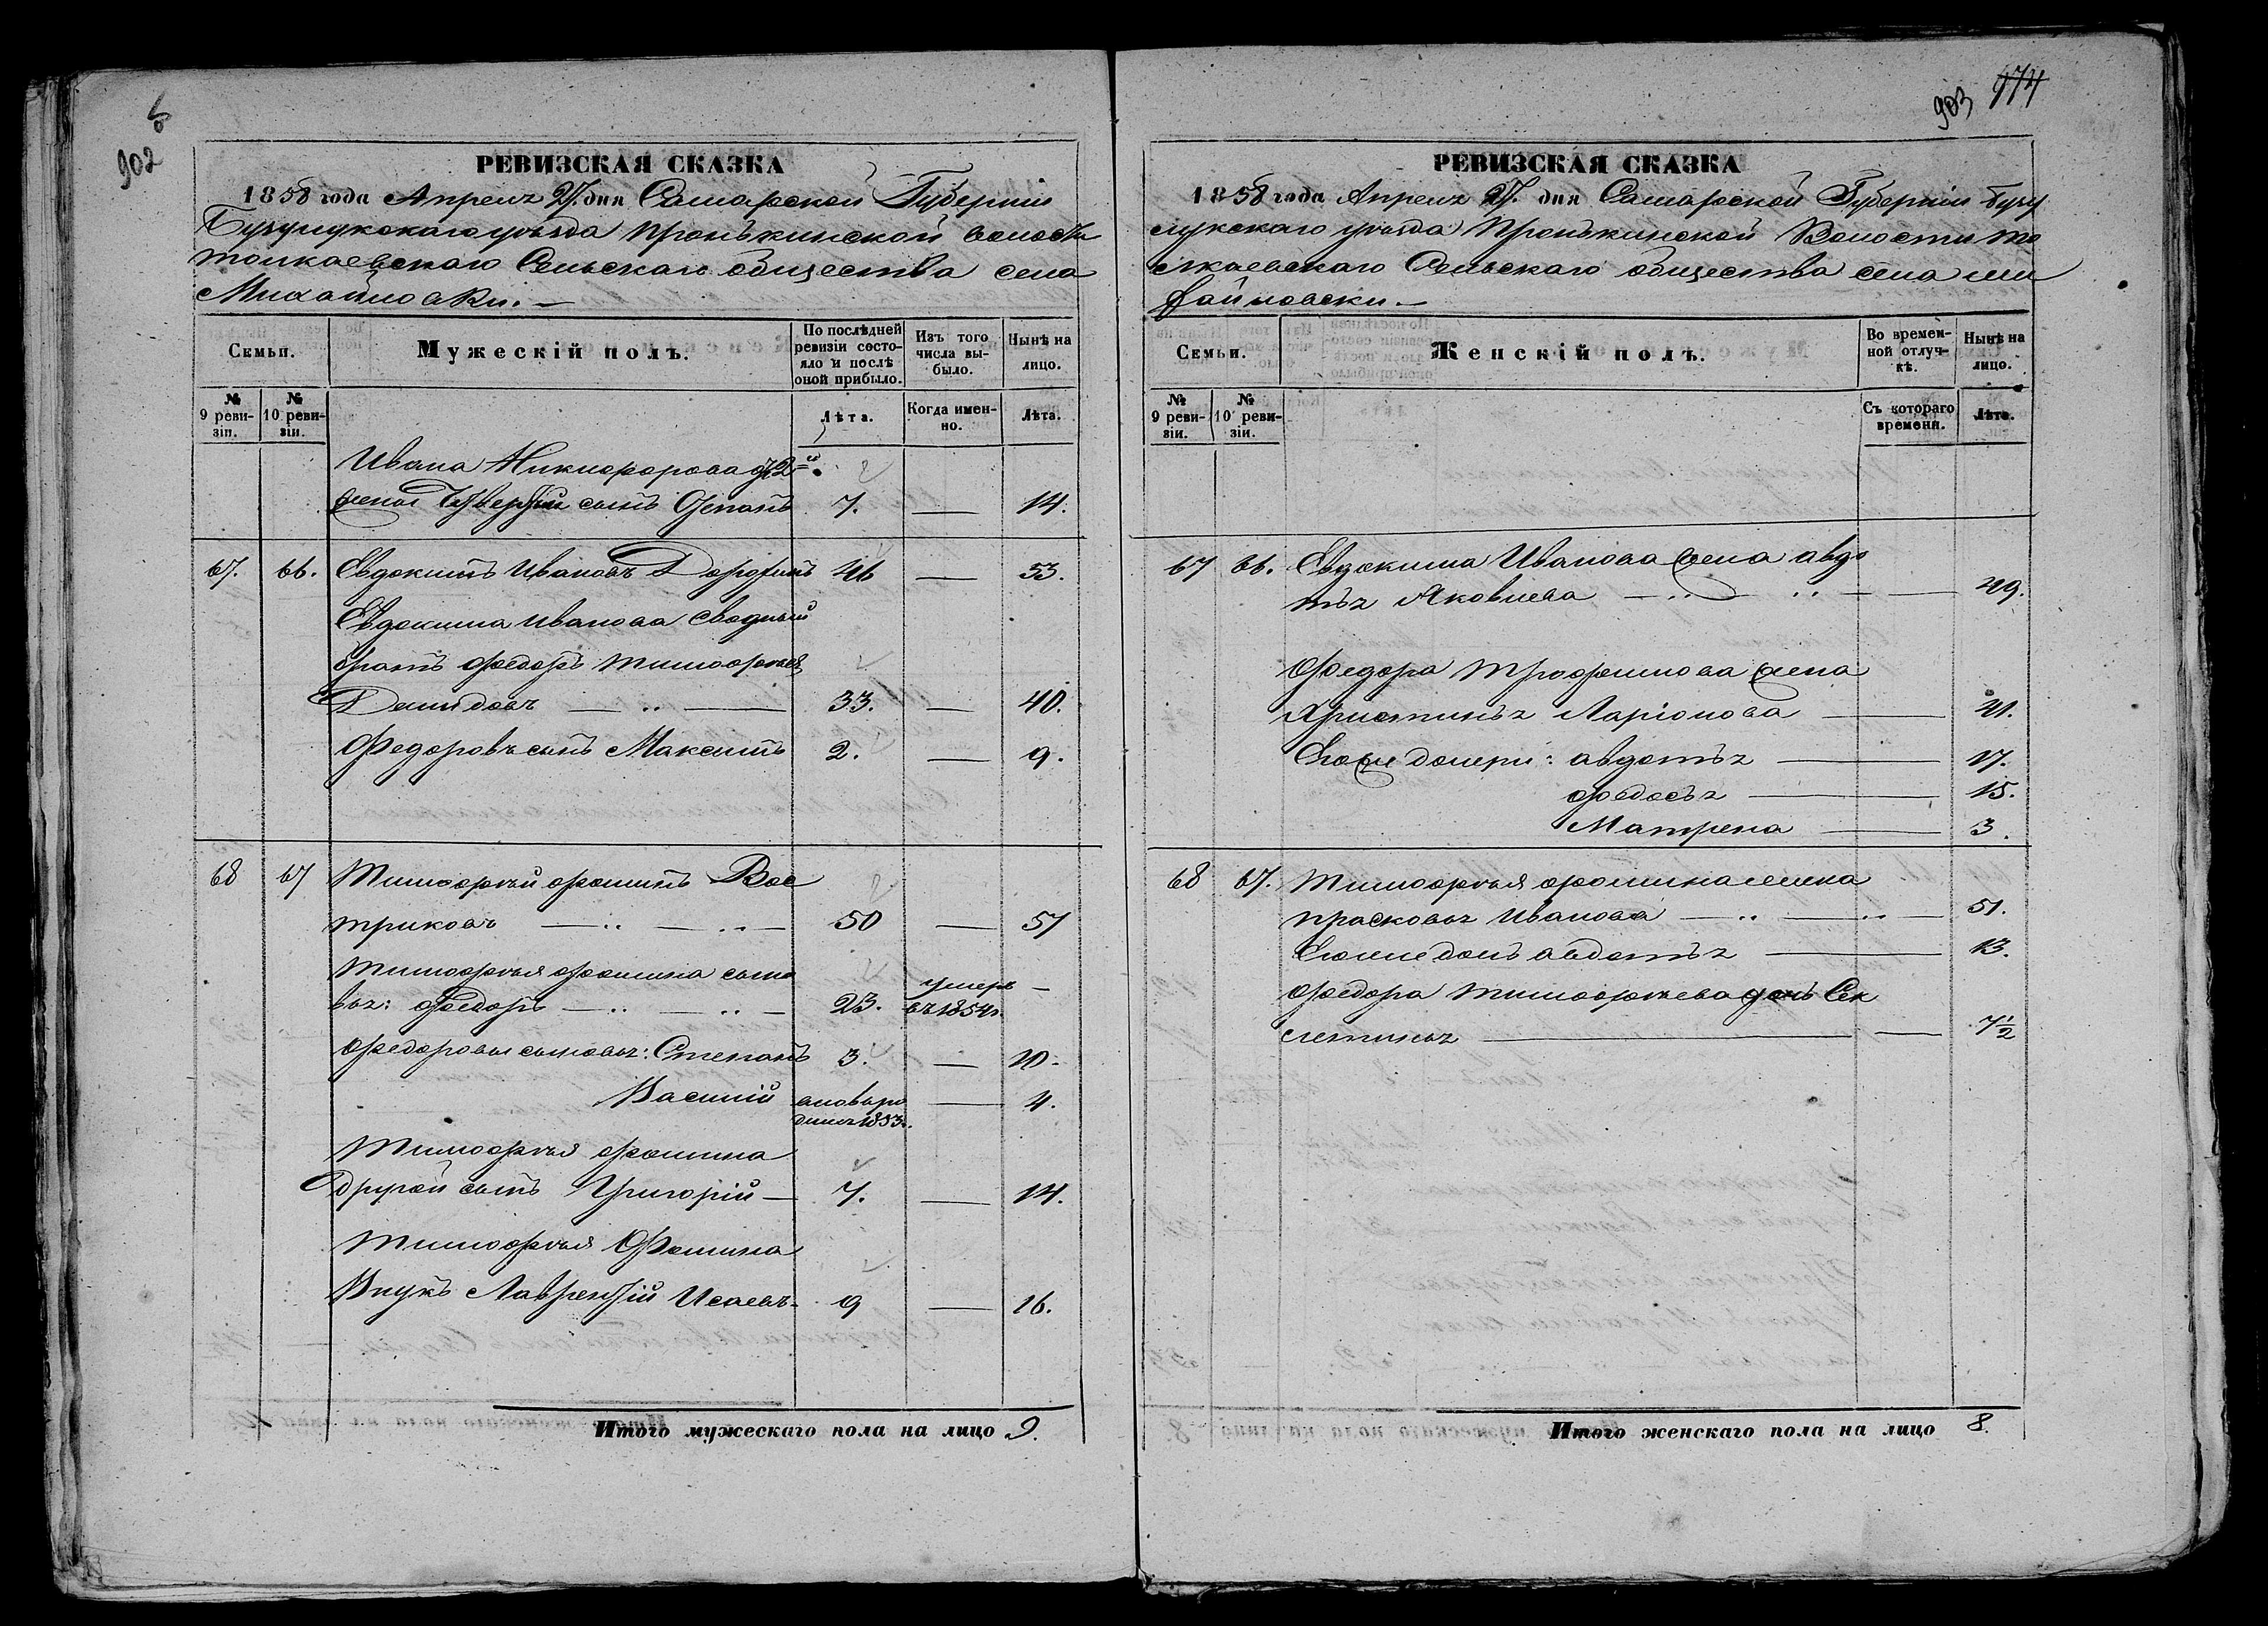 902
РЕВИЗСКАЯ СКАЗКА
1858 года Апреля 27. дня Самарской Губерніи
Бузулукскаго уѣзда Пронькинской волости
Толкаевскаго Сельскаго общества села
Михайловки. —
Семьи.
Мужескій полъ.
По послѣдней ревизіи состояло и послѣ оной прибыло.
Изъ того числа выбыло.
Нынѣ на лицо.
№ 9 ревизіи.
№ 10 ревизіи.
Лѣта.
Когда именно.
Лѣта.
Ивана Никифорова 2й
жены сынъ 7. — 14.
67. 66. Евдокимъ Ивановъ 46 — 53.
Евдокима Иванова Сводный
братъ Федоръ
Демидовъ — 33. — 40.
Федоровъ сынъ Максимъ 2. — 9.
68 67 Тимофей Фоминъ Вос
триковъ — 50 — 57
Тимофея Фомина сыно
вья: Федоръ — 23. умеръ въ 1854г. —
Федоровы сыновья: Степанъ 3. — 10.
Василій вновь ро дился 1853. — 4.
Тимофея Фомина
Другой сынъ Григорій — 7. — 14.
Тимофея Фомина
Внукъ Лаврентій Исаевъ 9 — 16.
Итого мужескаго пола на лицо 9.
903 474
РЕВИЗСКАЯ СКАЗКА
1858 года Апреля 27. дня Самарской Губерніи Бузу
лукскаго уѣзда Пронькинской Волости То
лкаевскаго Сельскаго общества села Ми
хайловски. —
Семьи.
Женскій полъ.
Во временной отлучкѣ.
Нынѣ на лицо.
№ 9 ревизіи.
№ 10 ревизіи.
Съ котораго времени.
Лѣта.
67 66. Евдокима Иванова жена Авдо
тья Яковлева — 49.
Федора Трофимова жена
Христинья Ларіонова — 41.
Егоже дочери: Авдотья — 17.
Федосья — 15.
Матрена — 3.
68 67. Тимофея Фомина жена
Прасковья Иванова — 51.
Егоже дочь Авдотья — 13.
Федора Тимофеева дочь Сек
летинья — 7½
Итого женскаго пола на лицо 8.